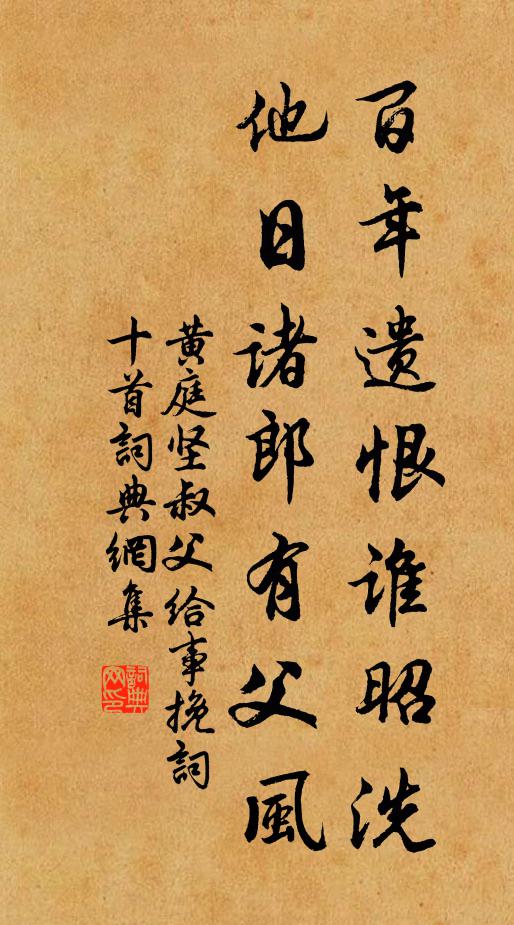 百年遗恨谁昭洗
他日诸郎有父風
黄庭坚叔父给事挽詞
十首詞典網集
詞典網印